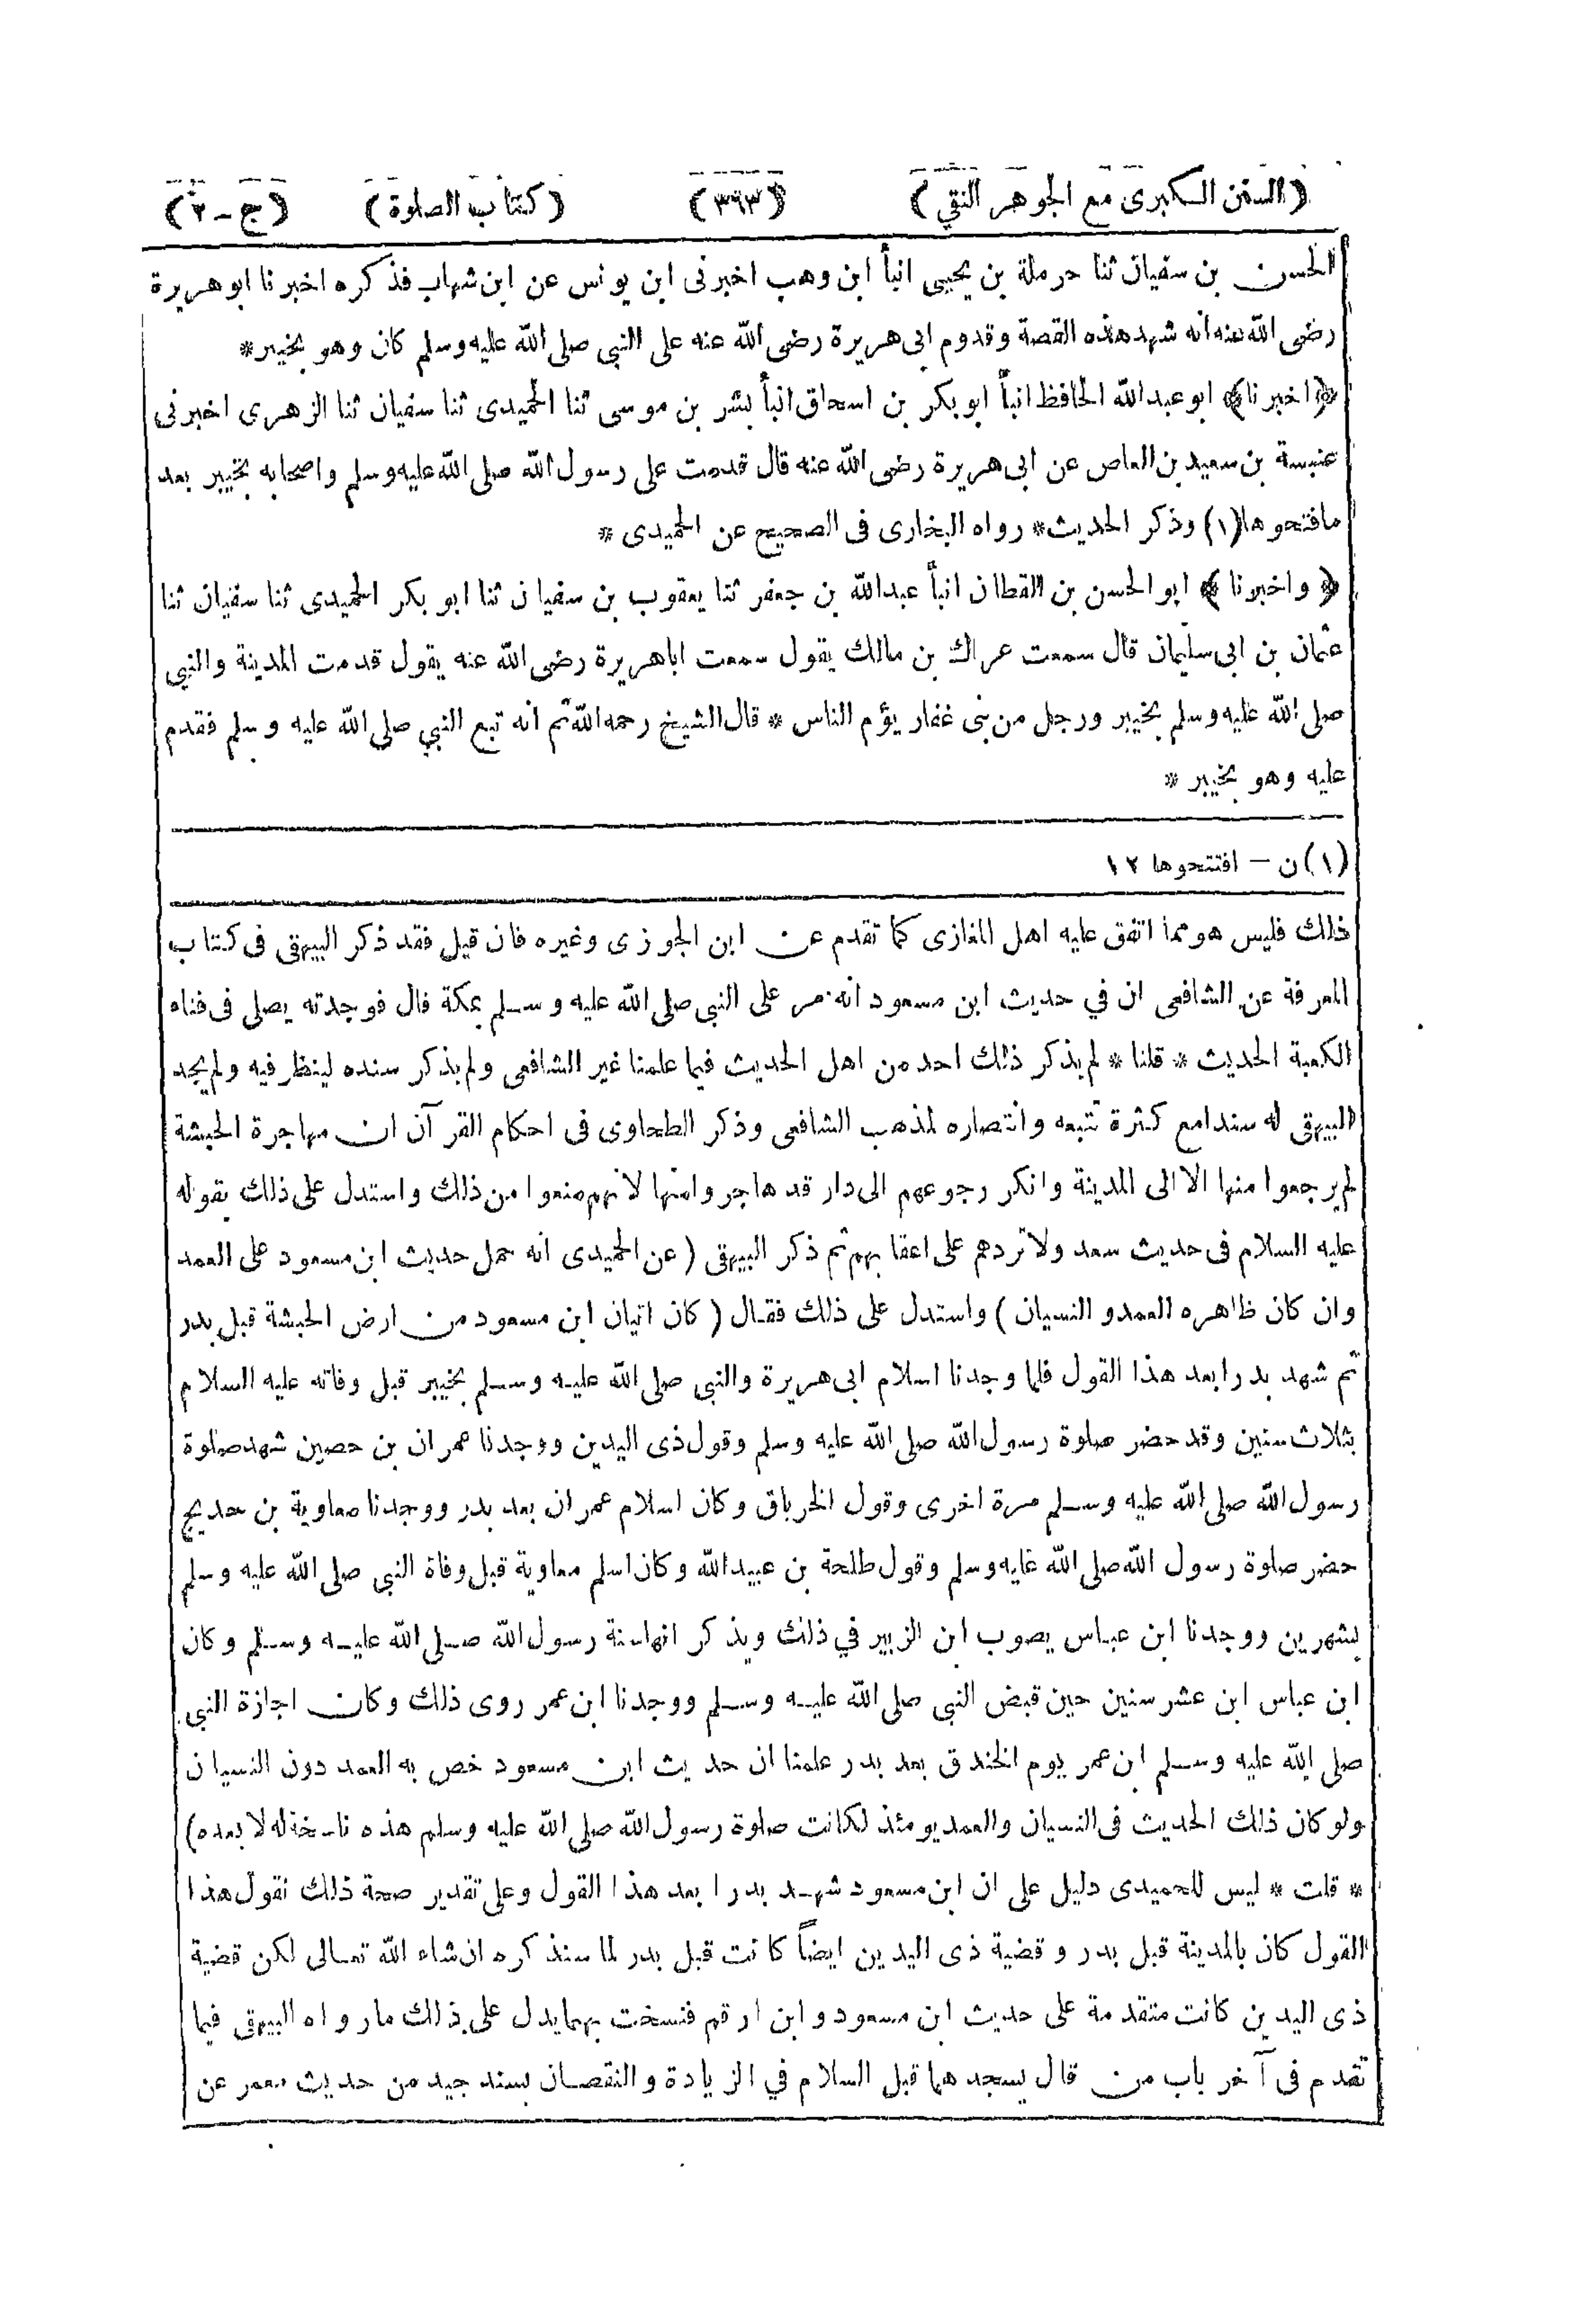 (السنن الكبرى مع الجوهر النقي) (٣٦٣) (كتاب الصلوة) (ج-٢)
الحسن بن سفيان ثنا حرملة بن يحيى انبأ ابن وهب اخبرنى ابن يونس عن ابن شهاب فذكره اخبرنا ابو هريرة
رضى الله عنه انه شهد هذه القصة وقدوم ابى هريرة رضى الله عنه على النبى صلى الله عليه وسلم كان وهو بخيبر*
﴿اخبرنا﴾ ابو عبدالله الحافظ انبأ ابو بكر بن اسحاق انبأ بشر بن موسى ثنا الحميدى ثنا سفيان ثنا الزهرى اخبرنى
عنبسة بن سعيد بن العاص عن ابى هريرة رضى الله عنه قال قدمت على رسول الله صلى الله عليه وسلم واصحابه بخيبر بعد
مافتحوها(١) وذكر الحديث* رواه البخارى فى الصحيح عن الحميدى *
﴿ واخبرنا ﴾ ابو الحسن بن القطان انبأ عبدالله بن جعفر ثنا يعقوب بن سفيان ثنا ابو بكر الحميدى ثنا سفيان ثنا
عثمان بن ابى سليمان قال سمعت عراك بن مالك يقول سمعت اباهريرة رضى الله عنه يقول قدمت المدينة والنبي
صلى الله عليه وسلم بخيبر ورجل من بنى غفار يؤم الناس * قال الشيخ رحمه الله ثم انه تبع النبي صلى الله عليه وسلم فقدم
عليه وهو بخيبر *
(١) ن – افتتحوها ١٢
ذلك فليس هو مما اتفق عليه اهل المغازى كما تقدم عن ابن الجوزى وغيره فان قيل فقد ذكر البيهقى فى كتاب
المعرفة عن الشافعى ان في حديث ابن مسعود انه مر على النبى صلى الله عليه وسلم بمكة قال فوجدته يصلى فى فناء
الكعبة الحديث * قلنا * لم يذكر ذلك احد من اهل الحديث فيما علمنا غير الشافعى ولم يذكر سنده لينظر فيه ولم يجد
البيهقى له سندا مع كثرة تتبعه وانتصاره لمذهب الشافعى وذكر الطحاوى فى احكام القرآن ان مهاجرة الحبشة
لم يرجعوا منها الا الى المدينة وانكر رجوعهم الى دار قد هاجروا منها لانهم منعوا من ذلك واستدل على ذلك بقوله
عليه السلام فى حديث سعد ولا تردهم على اعقابهم ثم ذكر البيهقى (عن الحميدى انه حمل حديث ابن مسعود على العمد
وان كان ظاهره العمد و النسيان) واستدل على ذلك فقال (كان اتيان ابن مسعود من ارض الحبشة قبل بدر
ثم شهد بدرا بعد هذا القول فلما وجدنا اسلام ابى هريرة والنبى صلى الله عليه وسلم بخيبر قبل وفاته عليه السلام
بثلاث سنين وقد حضر صلوة رسول الله صلى الله عليه وسلم وقول ذى اليدين ووجدنا عمران بن حصين شهد صلوة
رسول الله صلى الله عليه وسلم مرة اخرى وقول الخرباق وكان اسلام عمران بعد بدر ووجدنا معاوية بن حديج
حضر صلوة رسول الله صلى الله عليه وسلم وقول طلحة بن عبيدالله وكان اسلم معاوية قبل وفاة النبى صلى الله عليه وسلم
بشهرين ووجدنا ابن عباس يصوب ابن الزبير في ذلك ويذكر انها سنة رسول الله صلى الله عليه وسلم وكان
ابن عباس ابن عشر سنين حين قبض النبى صلى الله عليه وسلم ووجدنا ابن عمر روى ذلك وكان اجازة النبى
صلى الله عليه وسلم ابن عمر يوم الخندق بعد بدر علمنا ان حديث ابن مسعود خص به العمد دون النسيان
ولو كان ذلك الحديث فى النسيان والعمد يومئذ لكانت صلوة رسول الله صلى الله عليه وسلم هذه ناسخة له لا بعده)
* قلت * ليس للحميدى دليل على ان ابن مسعود شهد بدرا بعد هذا القول وعلى تقدير صحة ذلك نقول هذا
القول كان بالمدينة قبل بدر وقضية ذى اليدين ايضاً كانت قبل بدر لما سنذكره ان شاء الله تعالى لكن قضية
ذى اليدين كانت متقدمة على حديث ابن مسعود وابن ارقم فنسخت بهما يدل على ذلك مارواه البيهقى فيما
تقدم فى آخر باب من قال يسجدهما قبل السلام في الزيادة والنقصان بسند جيد من حديث معمر عن